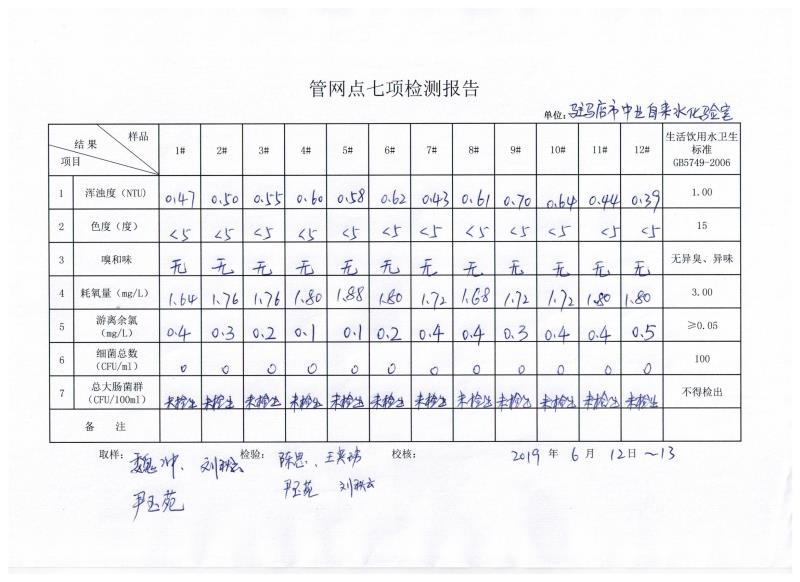 管网点七项检测报告
单位：驻马店市中业自来水化验室
结果 样品 项目 1# 2# 3# 4# 5# 6# 7# 8# 9# 10# 11# 12# 生活饮用水卫生标准 GB5749-2006
1 浑浊度（NTU） 0.47 0.50 0.55 0.60 0.58 0.62 0.43 0.61 0.70 0.64 0.44 0.39 1.00
2 色度（度） <5 <5 <5 <5 <5 <5 <5 <5 <5 <5 <5 <5 15
3 嗅和味 无 无 无 无 无 无 无 无 无 无 无 无 无异臭、异味
4 耗氧量（mg/L） 1.64 1.76 1.76 1.80 1.88 1.80 1.72 1.68 1.72 1.72 1.80 1.80 3.00
5 游离余氯（mg/L） 0.4 0.3 0.2 0.1 0.1 0.2 0.4 0.4 0.3 0.4 0.4 0.5 ≥0.05
6 细菌总数（CFU/ml） 0 0 0 0 0 0 0 0 0 0 0 0 100
7 总大肠菌群（CFU/100ml） 未检出 未检出 未检出 未检出 未检出 未检出 未检出 未检出 未检出 未检出 未检出 未检出 不得检出
备 注
取样： 魏冲、 检验： 陈思、 校核： 2019 年 6 月 12 日～13
尹玉苑 尹玉苑